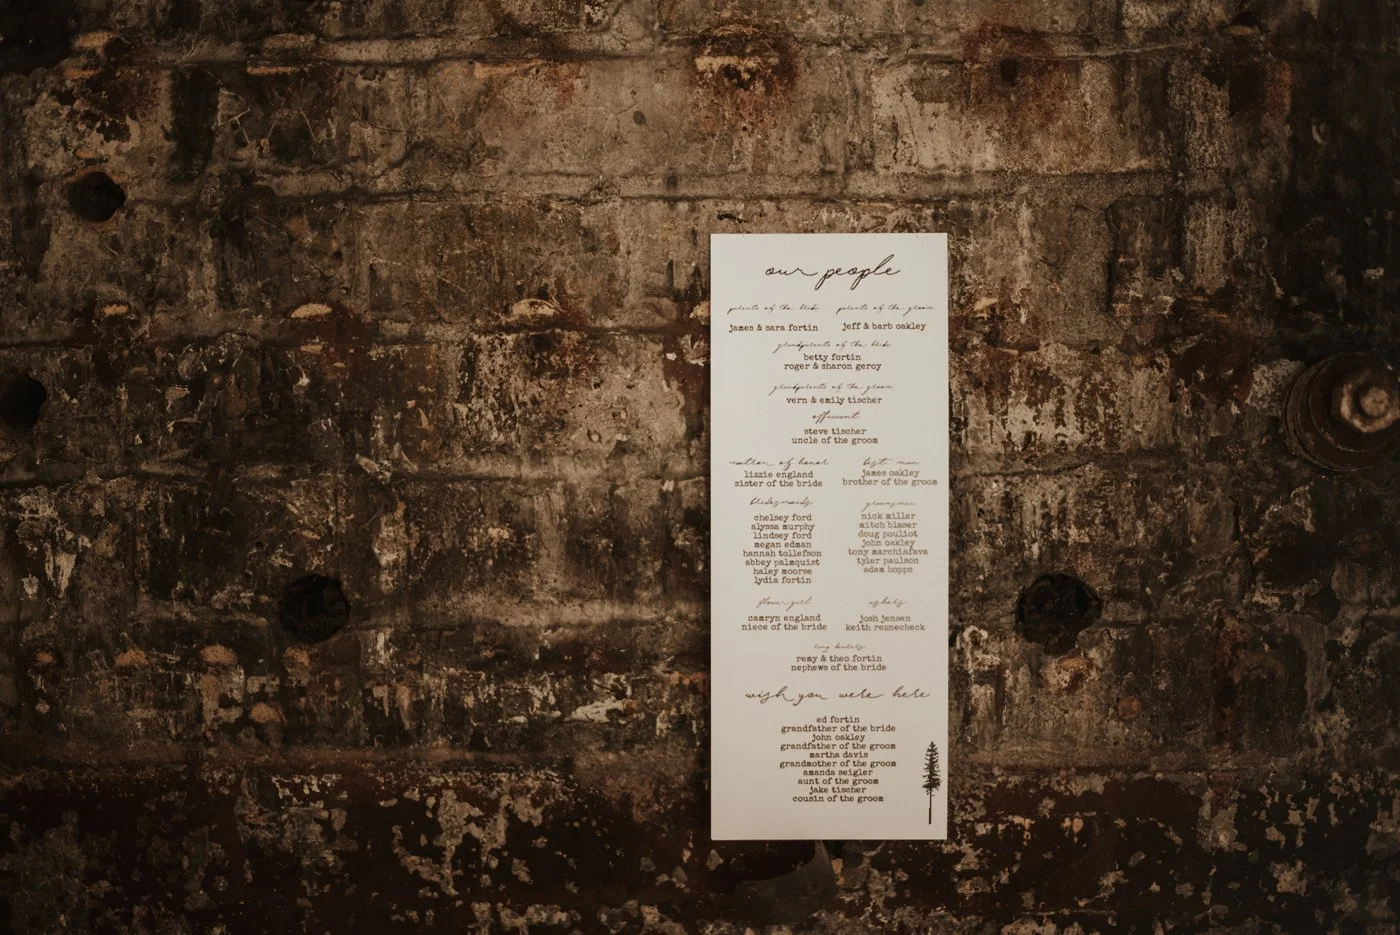 our people
parents of the bride
james & sara fortin
parents of the groom
jeff & barb oakley
grandparents of the bride
betty fortin
roger & sharon geroy
grandparents of the groom
vern & emily tischer
officiant
steve tischer
uncle of the groom
matron of honor
lizzie england
sister of the bride
best man
james oakley
brother of the groom
bridesmaids
chelsey ford
alyssa murphy
lindsey ford
megan edman
hannah tollefson
abbey palmquist
haley moorse
lydia fortin
groomsmen
nick miller
mitch blaser
doug pouliot
john oakley
tony marchiafava
tyler paulson
adam hopps
flower girl
camryn england
niece of the bride
ushers
josh jensen
keith reznecheck
ring bearers
remy & theo fortin
nephews of the bride
wish you were here
ed fortin
grandfather of the bride
john oakley
grandfather of the groom
martha davis
grandmother of the groom
amanda seigler
aunt of the groom
jake tischer
cousin of the groom